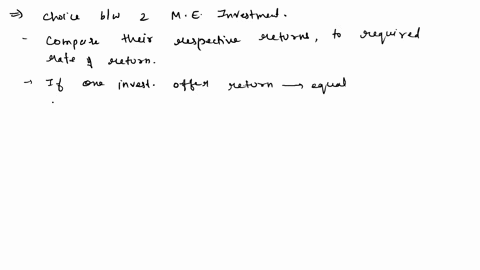 ⇒ Choice b/w 2 M.E. Investment.
- Compare their respective returns, to required
rate of return.
→ If one invest. offer return → equal